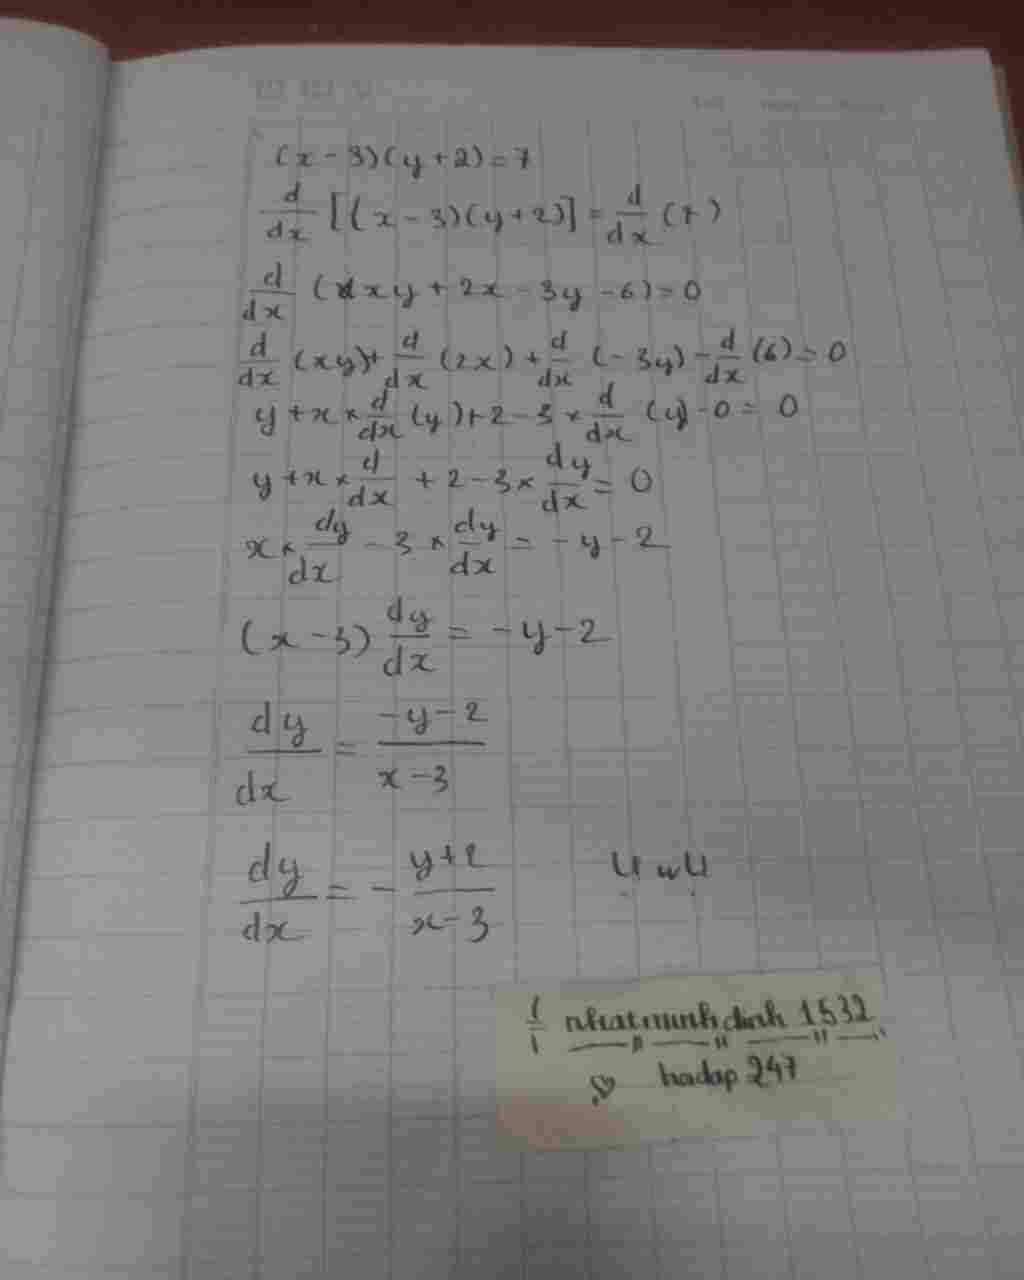 (x-3)(y+2)=7
d/dx [(x-3)(y+2)] = d/dx (7)
d/dx (xy + 2x - 3y - 6) = 0
d/dx (xy) + d/dx (2x) + d/dx (-3y) - d/dx (6) = 0
y + x × d/dx (y) + 2 - 3 × d/dx (y) - 0 = 0
y + x × d/dx + 2 - 3 × dy/dx = 0
x × dy/dx - 3 × dy/dx = -y - 2
(x-3) dy/dx = -y-2
dy/dx = (-y-2)/(x-3)
dy/dx = - (y+2)/(x-3)
UwU
nhatminhdinh 1532
hoidap 247